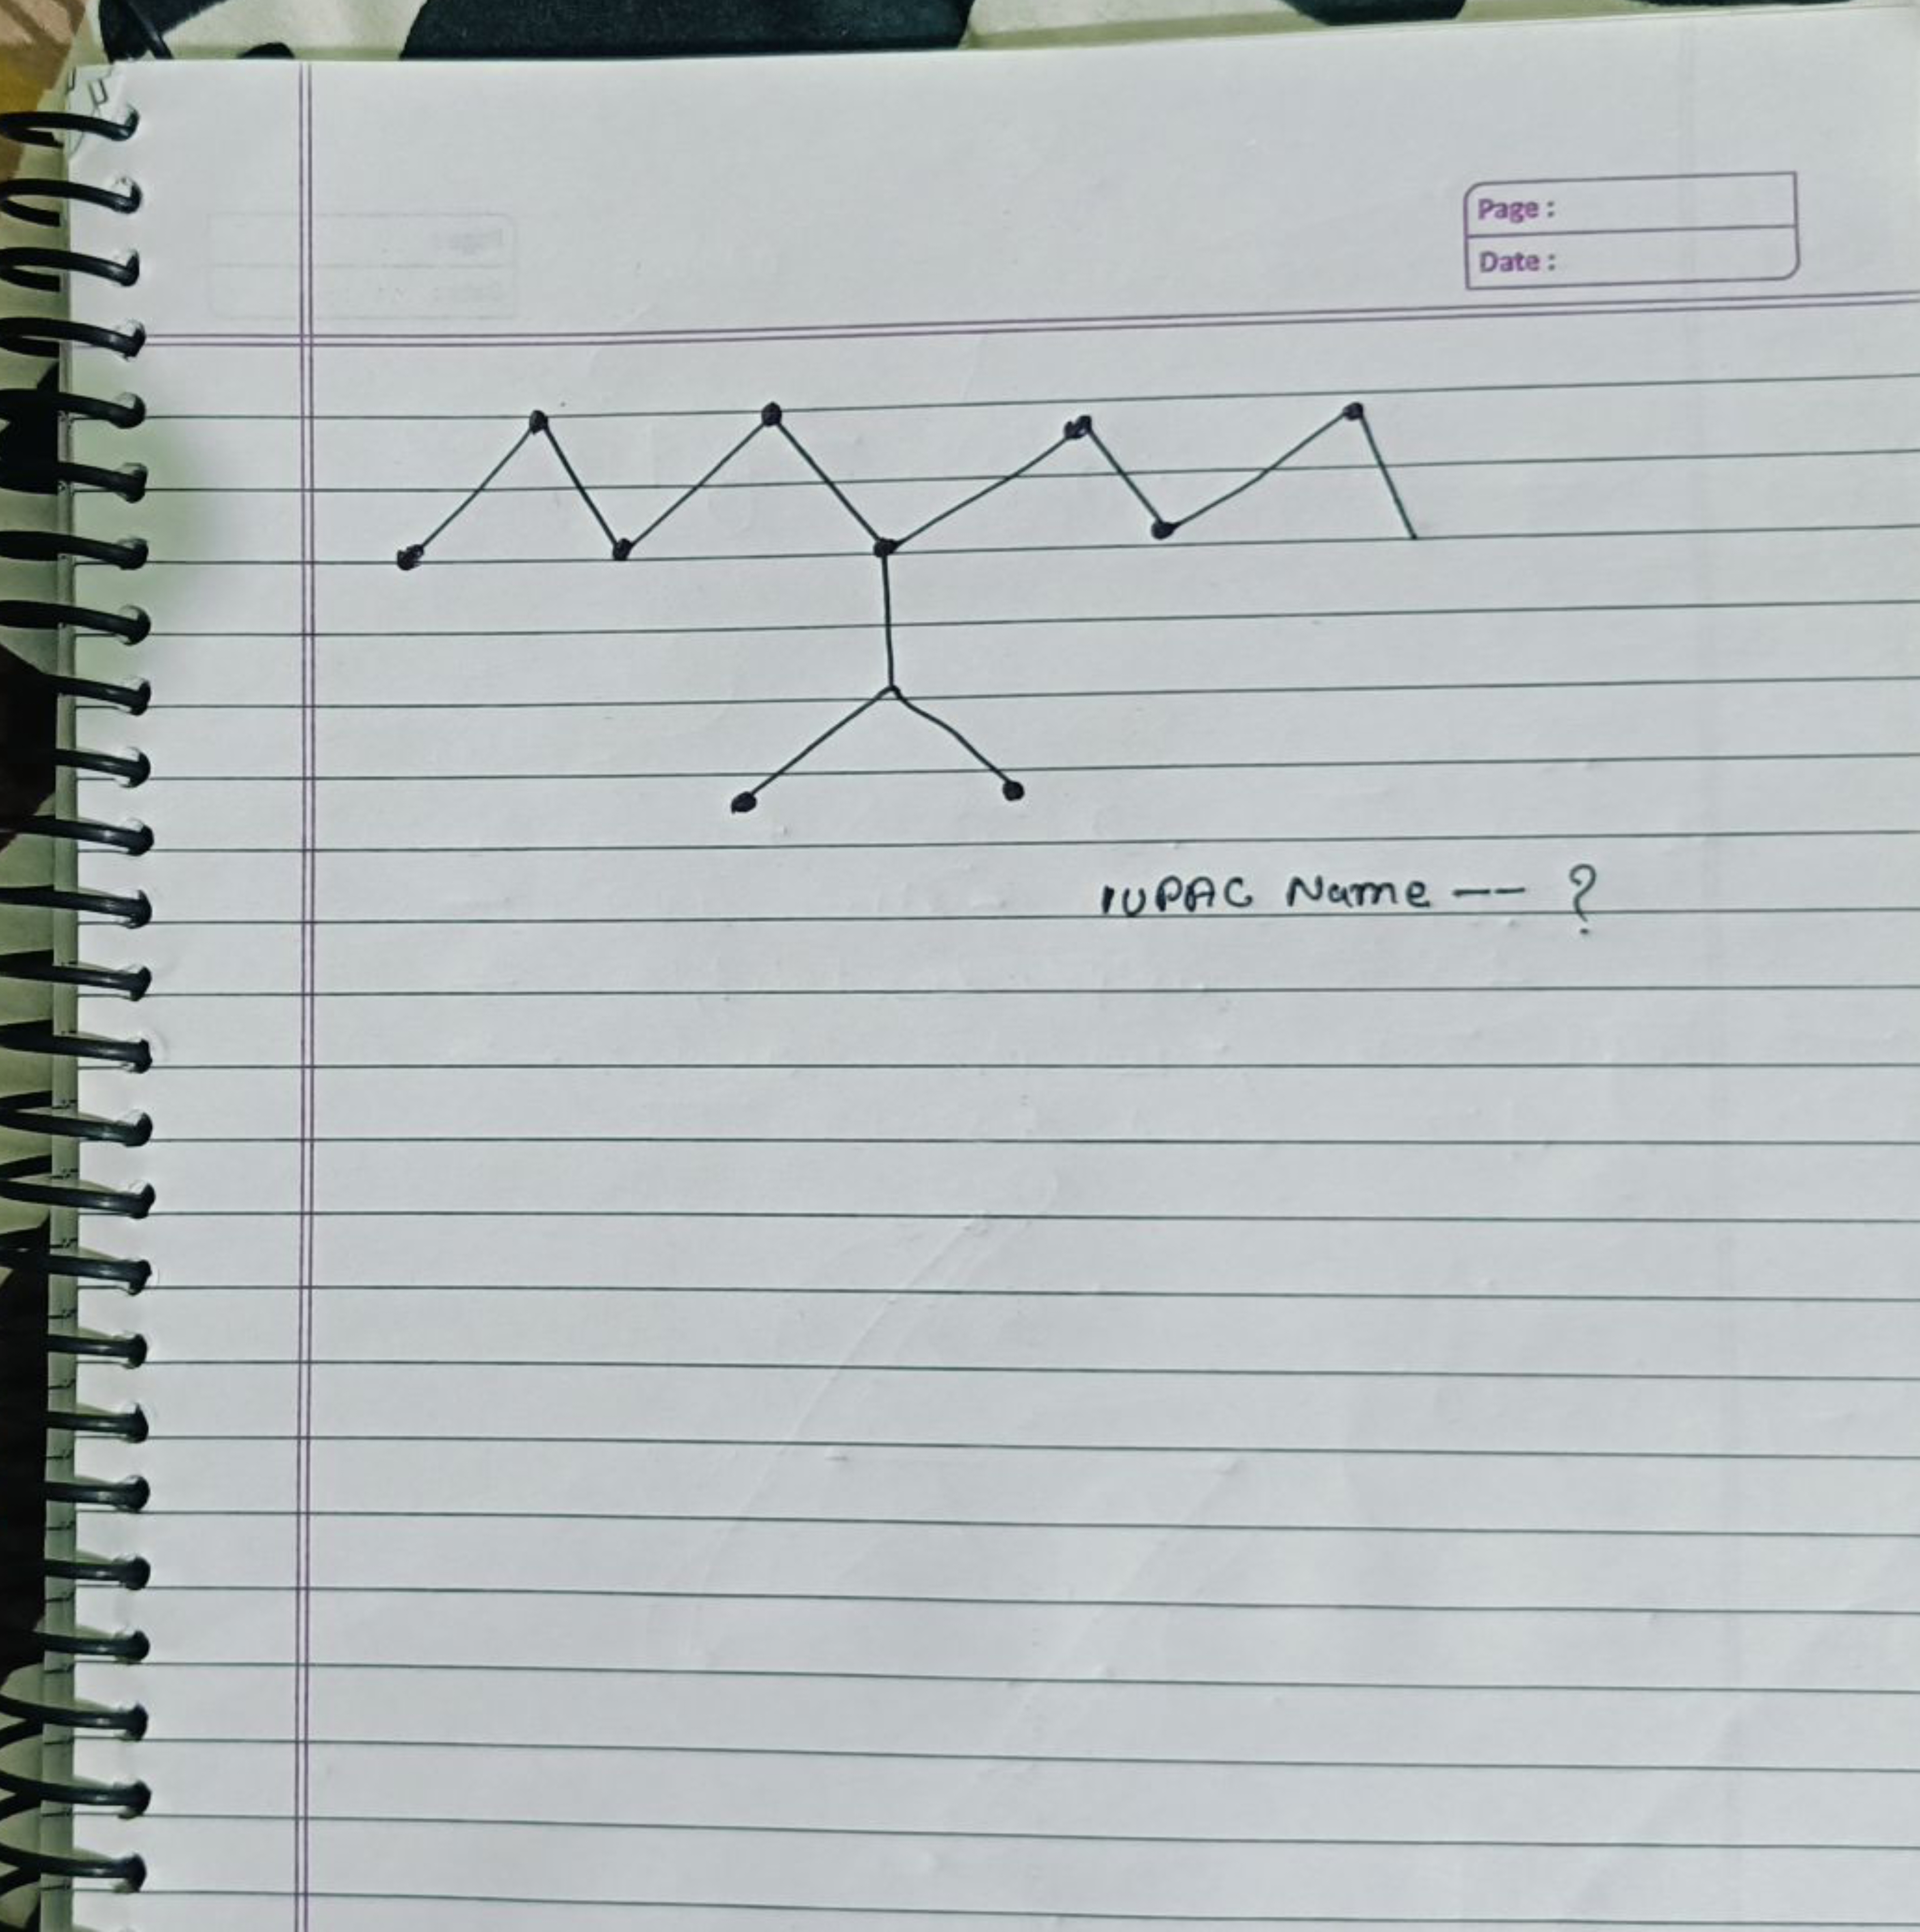 Page :
Date :
IUPAC Name -- ?